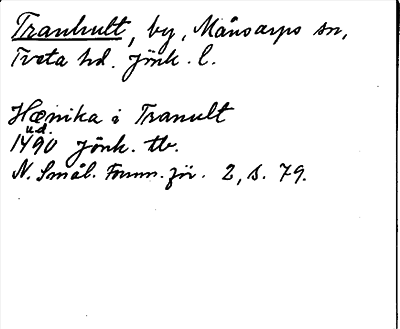 Tranhult, by, Månsarps sn,
Tveta hd. Jönk. l.
Hænika i Tranult
u.d.
1490 Jönk. tb.
N. Smål. Fornm. för. 2, s. 79.